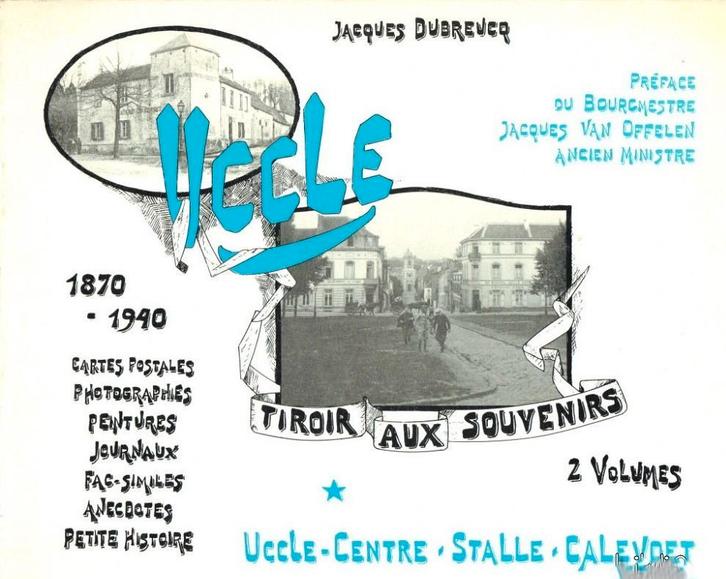 Jacques Dubreucq
Préface
du Bourgmestre
Jacques Van Offelen
Ancien Ministre
Uccle
1870
- 1940
Cartes Postales
Photographies
Peintures
Journaux
Fac-similes
Anecdotes
Petite Histoire
TIROIR AUX SOUVENIRS
2 Volumes
Uccle-Centre · Stalle · Calevoet